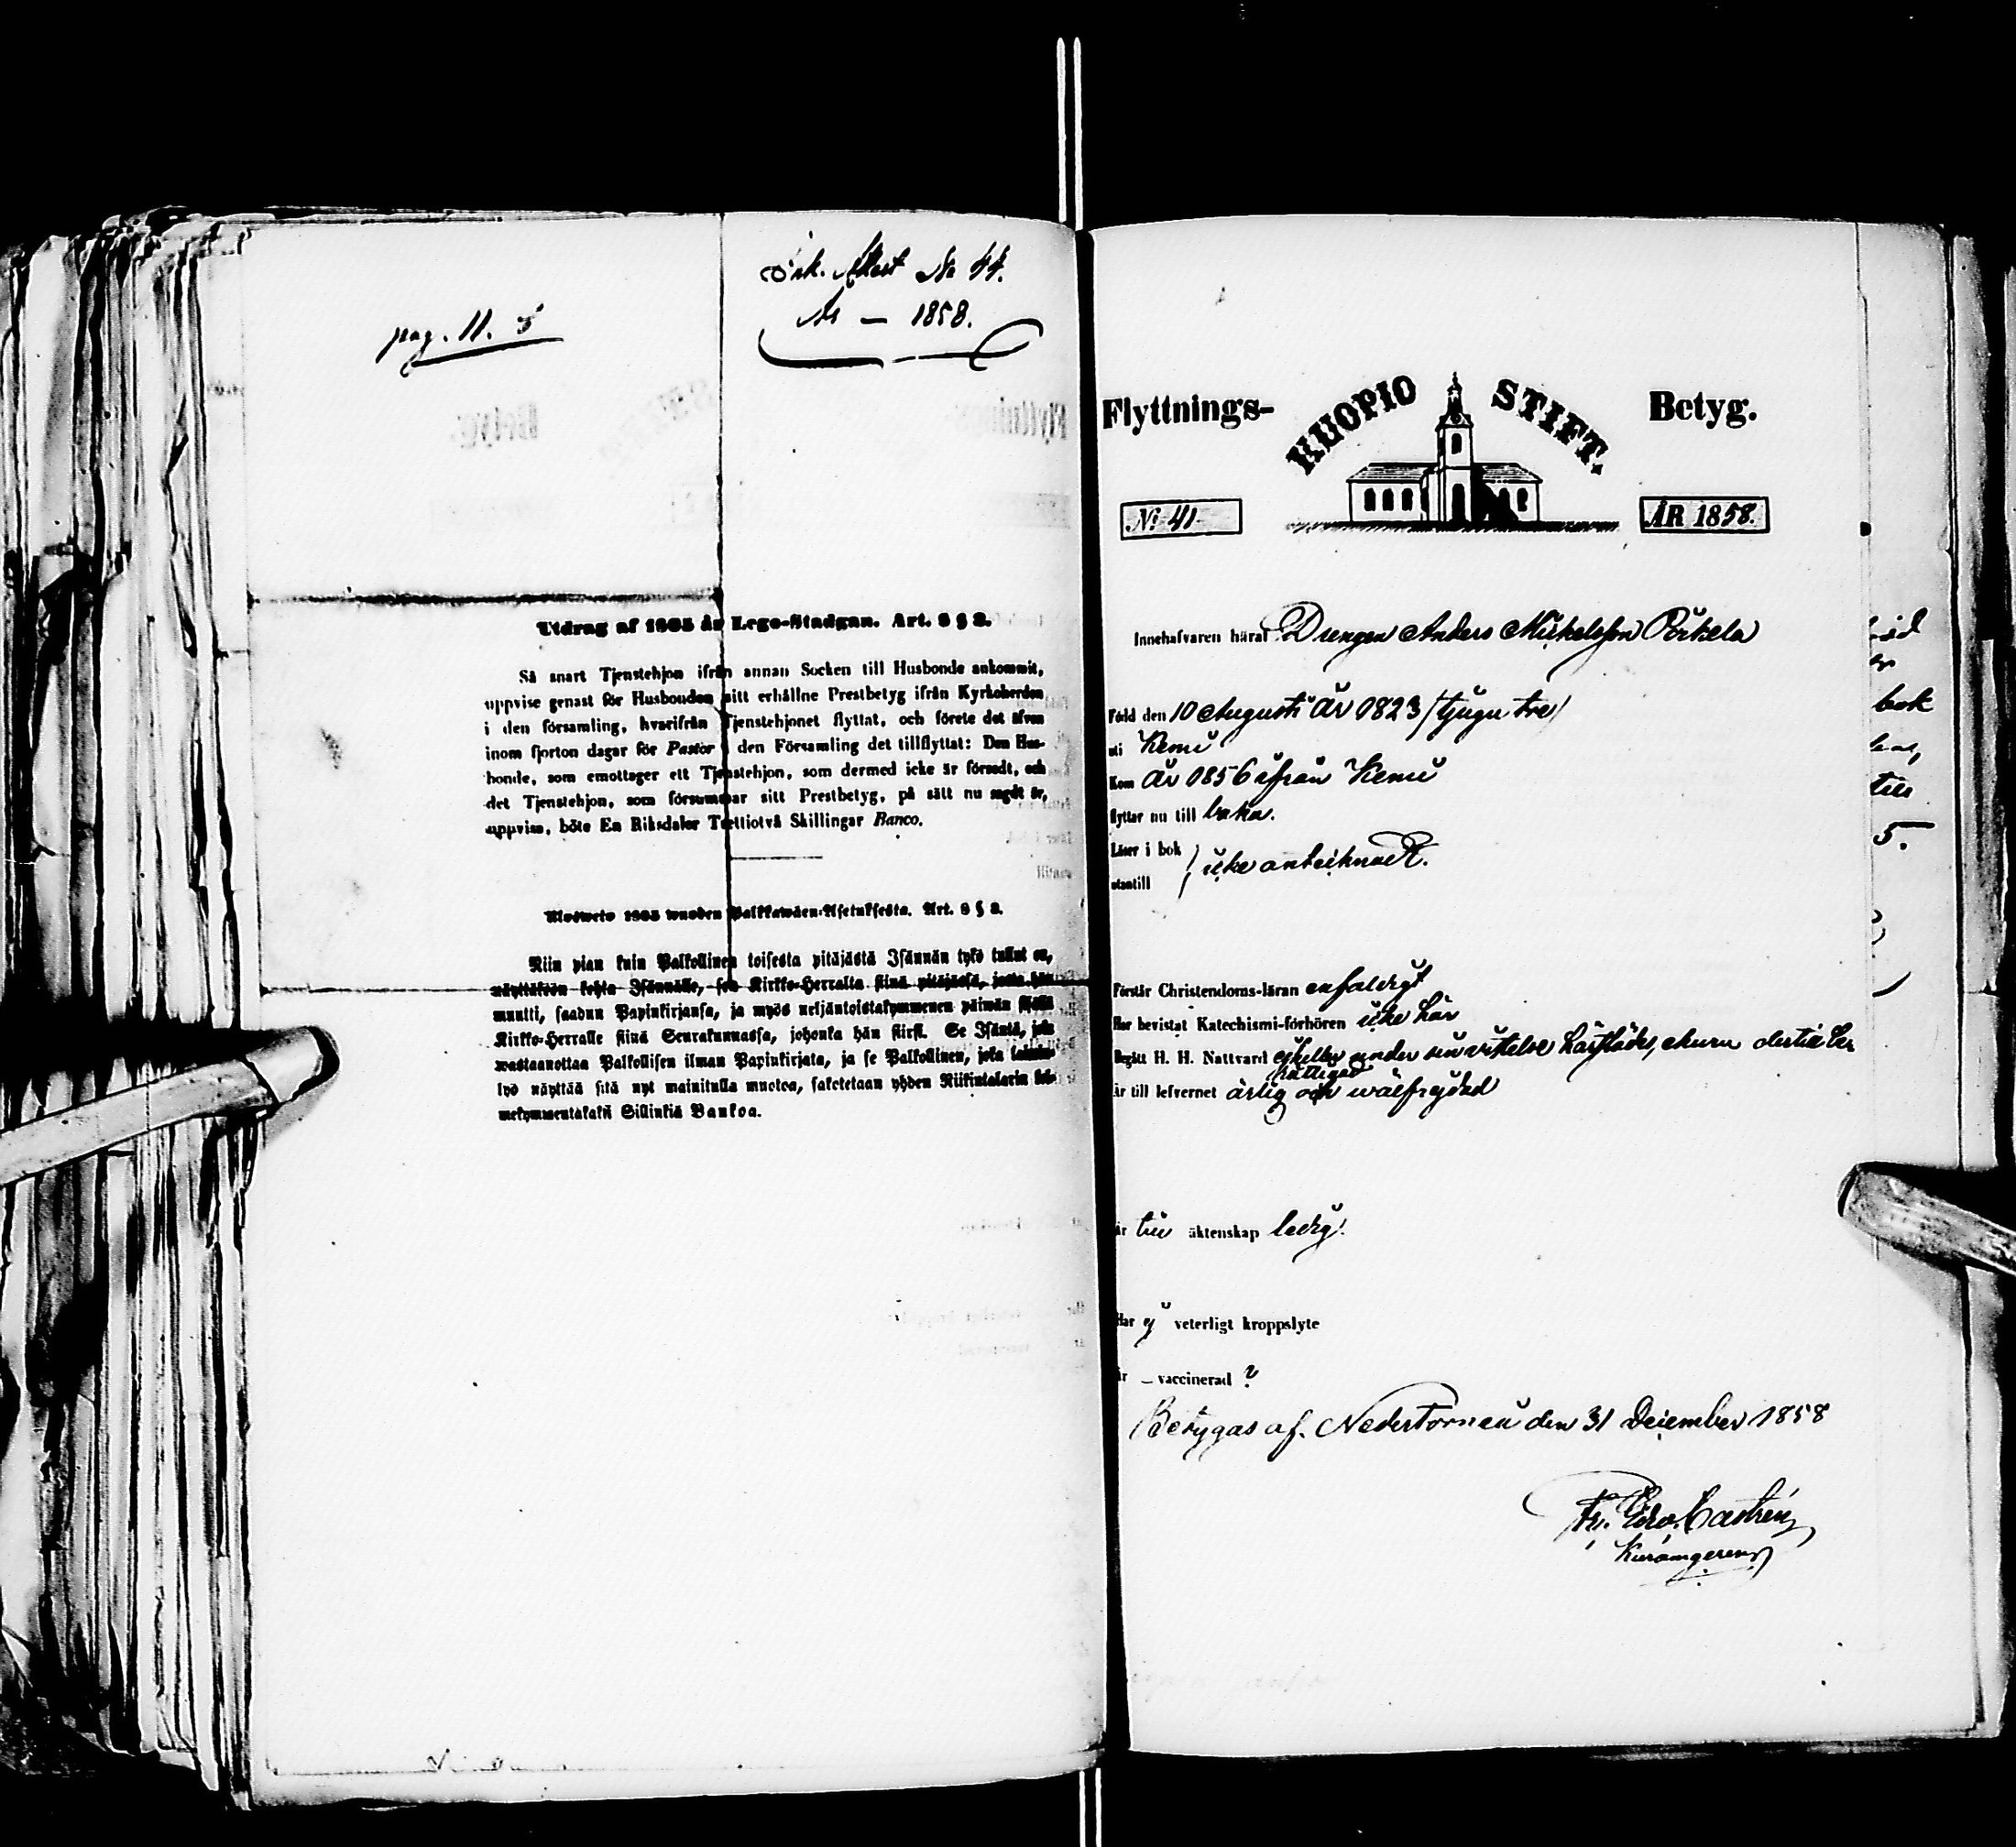 Ink. Attest No 44.
År — 1858.
pag. 11. 5
Utdrag af 1805 års Lego-stadgan. Art. 8 § 2.
Så snart Tjenstehjon ifrån annan Socken till Husbonde ankommit,
uppvise genast för Husbonden sitt erhållne Prestbetyg ifrån Kyrkoherden
i den församling, hvarifrån Tjenstehjonet flyttat, och förete det äfven
inom fjorton dagar för Pastor i den Församling det tillflyttat: Den Hus-
bonde, som emottager ett Tjenstehjon, som dermed icke är försedt, och
det Tjenstehjon, som försummar sitt Prestbetyg, på sätt nu sagdt är,
uppvisa, böte En Riksdaler Trettiotvå Skillingar Banco.
Ulosweto 1805 wuoden Palkkawäen-Asetuksesta. Art. 8 § 2.
Niin pian kuin Palkollinen toisesta pitäjästä Isännän tykö tullut on,
näyttäköön kohta Isännälle, sen Kirkko-Herralta siinä pitäjässä, josta hän
muutti, saadun Papinkirjansa, ja myös neljäntoistakymmenen päiwän sisällä
Kirkko-Herralle siinä Seurakunnassa, johonka hän siirsi. Se Isäntä, joka
wastaanottaa Palkollisen ilman Papinkirjata, ja se Palkollinen, joka laimin-
lyö näyttää sitä nyt mainitulla muotoa, sakotetaan yhden Riikintalarin kol-
mekymmentäkaksi Sillinkiä Bankoa.
Flyttnings- KUOPIO STIFT. Betyg.
No 41 ÅR 1858.
Innehafvaren häraf Drengen Anders Mickelsson Pörkela
Född den 10 Augusti år 1823 /tjugu tre/
uti Kemi
Kom år 1856 ifrån Kemi
flyttar nu till baka.
Läser i bok
utantill } icke antecknadt.
Förstår Christendoms-läran enfaldigt
Har bevistat Katechismi-förhören icke här
Begått H. H. Nattvard ej heller under sin vistelse härstädes, ehuru dertill ber
hättigad
är till lefvernet ärlig och wälfrejdad
är till äktenskap ledig.
Har ej veterligt kroppslyte
är – vaccinerad ?
Betygas af. NederTorneå den 31 December 1858
Fr. Edv. Castrén